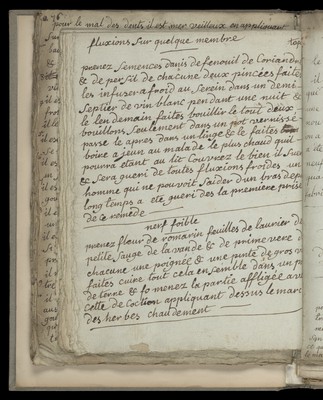 pour le mal des dents il est mer veilleux en appliquant
fluxions sur quelque membre
prenez semences danis de fenouil de Coriandr
& de persil de chacune deux pincées faite
les infuser a froid au serein dans un demi
septier de vin blanc pendant une nuit &
le len demain faites bouillir le tout deux
bouillons seulement dans un pot vernissé
passé le apres dans un linge & le faites
boire a jeun au malade le plus chaud quil
pourra etant au lit Couvrez le bien il sue
& sera gueri de toutes fluxions froides un
homme qui ne pouvoit saider d'un bras dep
long temps a eté gueri des la premiere prise
de ce remede
nerf foible
prenez fleur de romarin feuilles de laurier de
petite sauge de la vande & de prime vere d
chacune une poignée & une pinte de gros v
faites cuire tout cela en semble dans un p
de terre & fo menez la partie affligée av
cette de coction appliquant dessus le marc
des herbes chaudement